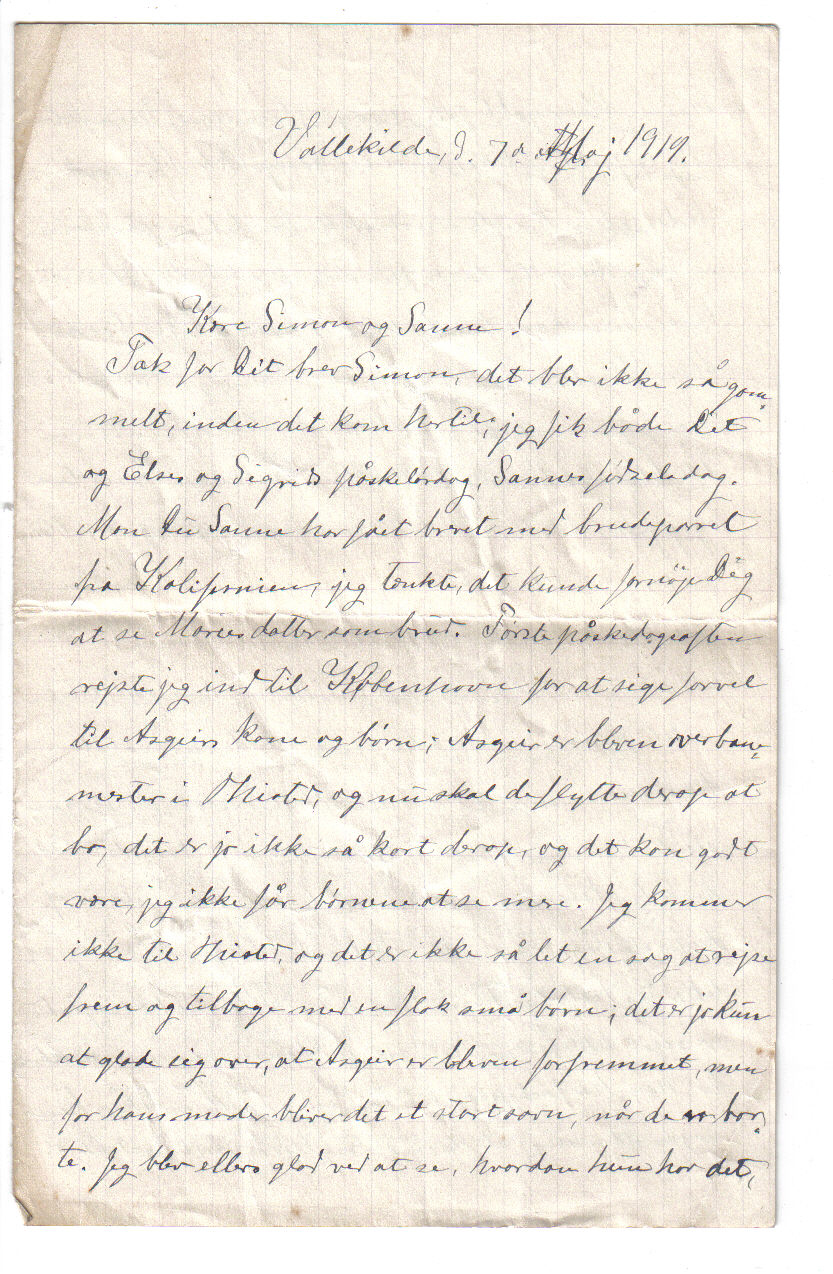 Vallekilde, d. 7de Maj 1919.
Kære Simon og Sanne!
Tak for Dit brev Simon, det blev ikke så gam„
melt, inden det kom hertil; jeg fik både Det
og Elses og Sigrids påskelørdag, Sannes fødselsdag.
Mon Du Sanne har fået brevet med brudeparret
fra Kalifornien, jeg tænkte, det kunde fornøje Dig
at se Maries datter som brud. Første påskedagaften
rejste jeg ind til København for at sige farvel
til Asgeirs kone og børn; Asgeir er bleven overbane„
mester i Thisted, og nu skal de flytte derop at
bo, det er jo ikke så kort derop, og det kan godt
være, jeg ikke får børnene at se mere. Jeg kommer
ikke til Thisted, og det er ikke så let en sag at rejse
frem og tilbage med en flok små børn; det er jo kun
at glæde sig over, at Asgeir er bleven forfremmet, men
for hans moder bliver det et stort savn, når de er bor„
te. Jeg blev ellers glad ved at se, hvordan hun har det,